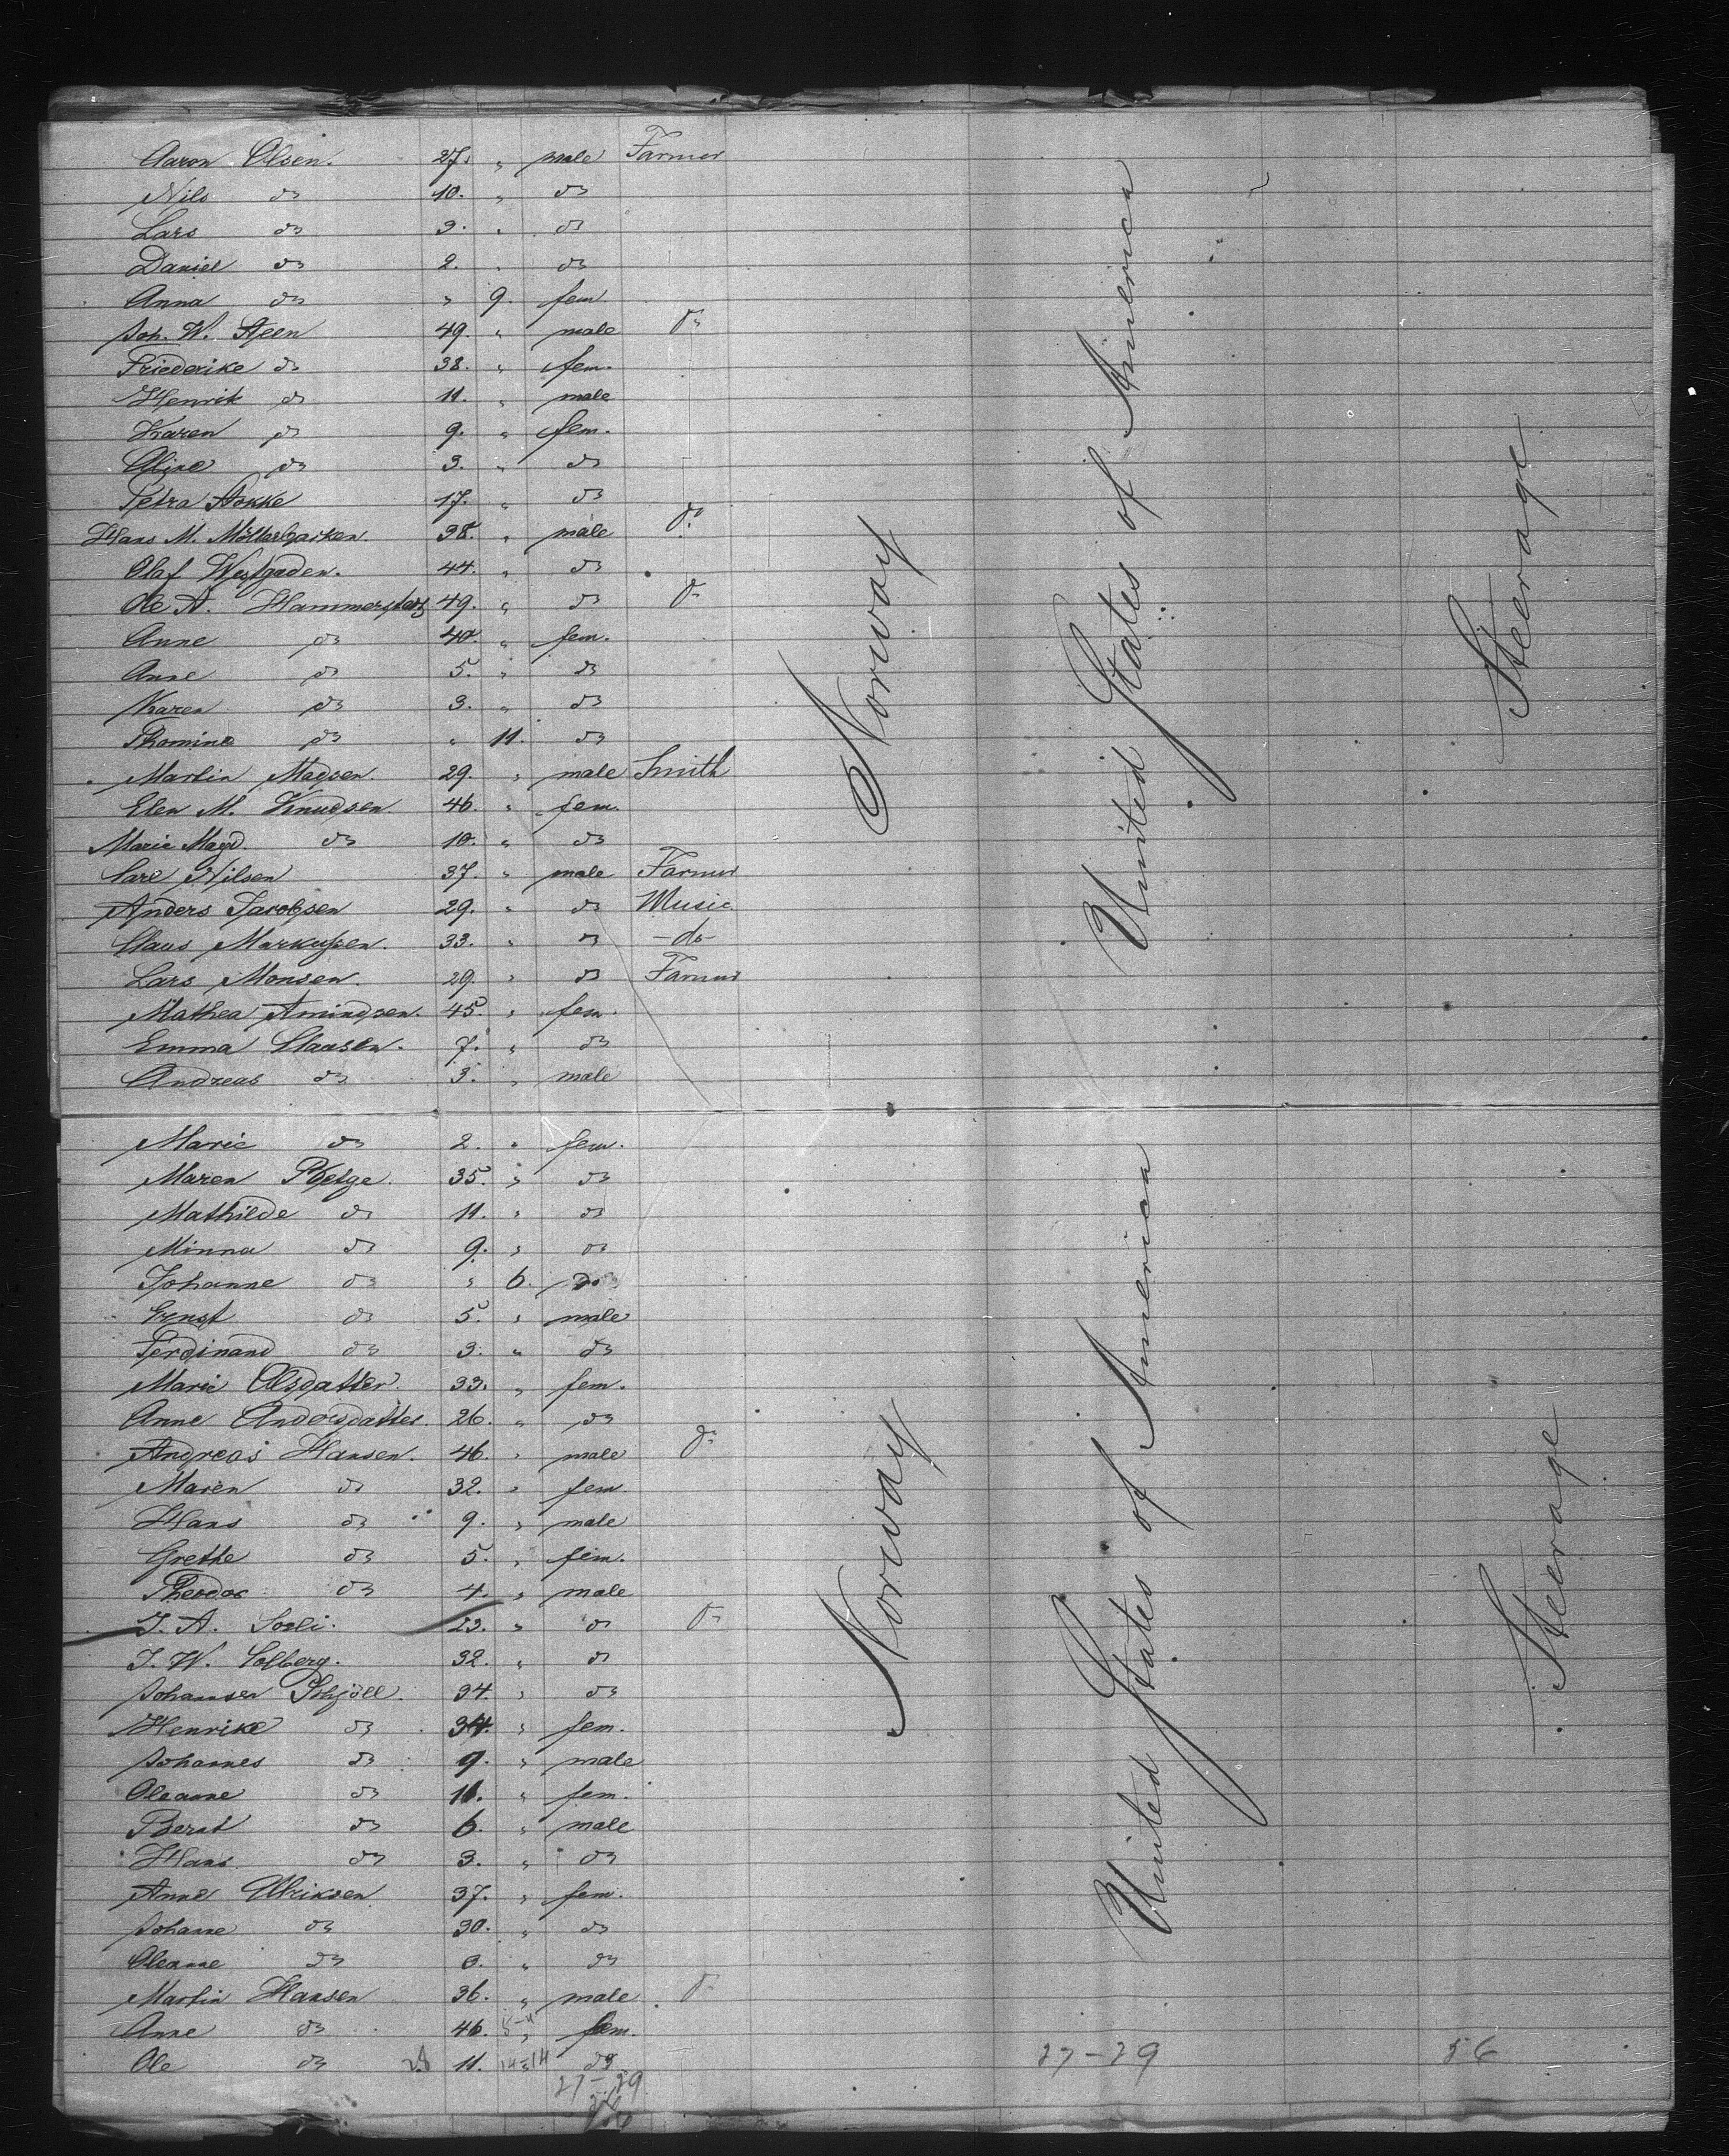 Aaron Olsen. 27. " male Farmer
Nils do 10. " do
Lars do 3. " do
Daniel do 2. " do
Anna do " 9. fem.
Joh. W. Steen 49. " male do
Friederike do 38. " fem.
Henrik do 11. " male
Karen do 9. " fem.
Oline do 3. " do
Petra 17. " do
Hans M. 38. " male do
Olaf Westgaden. 44. " do
Ole A. 49. " do do
Anne do 40. " fem.
Anne do 5. " do
Karen do 3. " do
Thomine do " 11. do
Martin Madsen 29. " male Smith
Elen M. Knudsen. 46. " fem.
Marie Magd. do 10. " do
Carl Nilsen 37. " male Farmer
Anders Jacobsen 29. " do Music
Claus Markussen. 33. " do -do-
Lars Monsen. 29. " do Farmer
Mathea Amundsen. 45. " fem.
Emma Clausen. 7. " do
Andreas do 3. " male
Norway
United States of America
Steerage
Marie do 2. " fem.
Maren Helge. 35. " do
Mathilde do 11. " do
Minna do 9. " do
Johanne do " 6. do
Ernst do 5. " male
Ferdinand do 3. " do
Marie Olsdatter. 33. " fem.
Anne Andersdatter 26. " do
Andreas Hansen. 46. " male do
Maren do 32. " fem
Hans do 9. " male
Grethe do 5. " fem.
Theodor do 4. " male
J. A. Soeli. 23. " do do
J. W. Solberg. 32. " do
Johansen 34. " do
Henrike do 34. " fem.
Johannes do 9. " male
Oleanne do 11. " fem.
Berat do 6. " male
Hans do 3. " do
Anne Ulriksen 37. " fem.
Johane do 30. " do
Oleanne do " do
Martin Hansen 36. " male do
Anne do 46. " fem.
Ole do 11. do
27-29
Norway
United States of American
Steerage
27-29 56